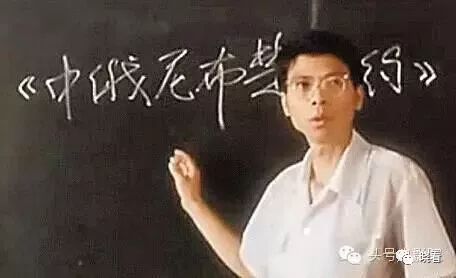 《中俄尼布楚 约》
头号